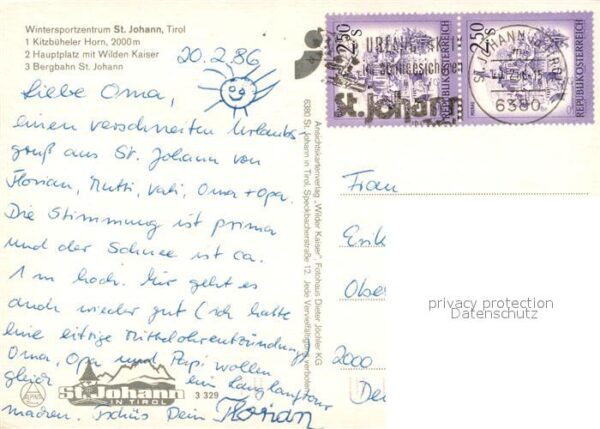 Wintersportzentrum St. Johann, Tirol
1 Kitzbüheler Horn, 2000 m
2 Hauptplatz mit Wilden Kaiser
3 Bergbahn St. Johann
20.2.86
Liebe Oma,
einen verschneiten Urlaubs-
gruß aus St. Johann von
Florian, Mutti, Vati, Oma + Opa.
Die Stimmung ist prima
und der Schnee ist ca.
1 m hoch. Mir geht es
auch wieder gut (ich hatte
eine eitrige Mittelohrentzündung)
Oma, Opa und Papi wollen
gleich ein Langlauftour
machen. Tschüs Dein Florian
St. Johann
IN TIROL
3 329
Ansichtskartenverlag „Wilder Kaiser", Fotohaus Dieter Jöchler KG
6380 St. Johann in Tirol, Speckbacherstraße 12. Jede Vervielfältigung verboten!
2.50 S
REPUBLIK ÖSTERREICH
2.50 S
REPUBLIK ÖSTERREICH
URLAUB
st.johann
ST. JOHANN
6380
Frau
Erik
Ober
2000
privacy protection
Datenschutz